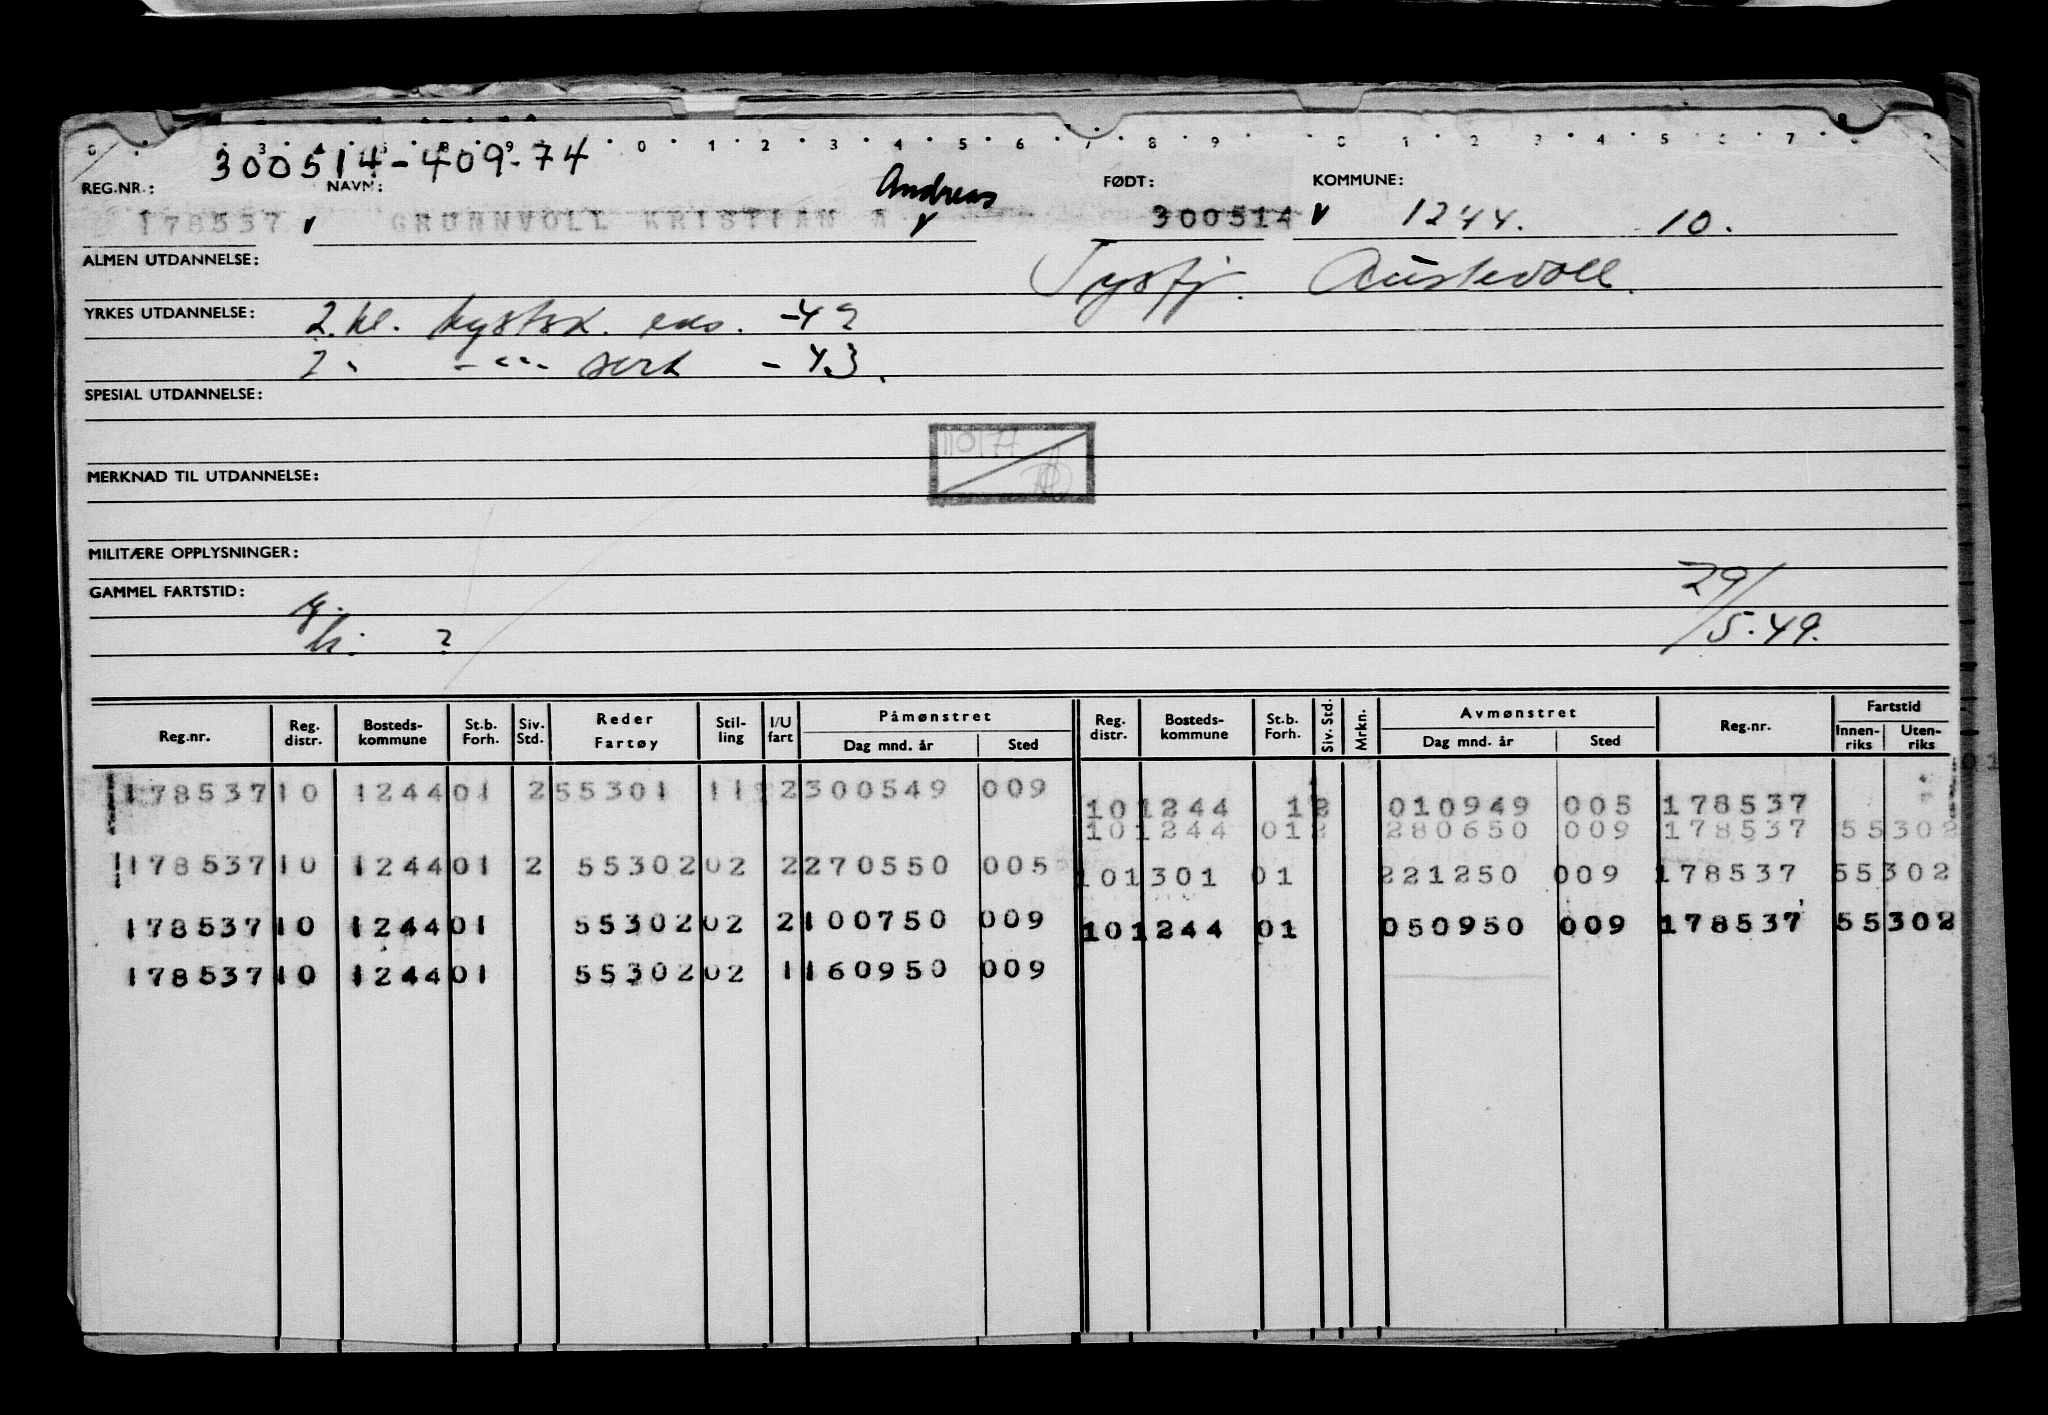 300514-409-74
0 1 2 3 4 5 6 7 8 9 0 1 2 3 4 5 6 7
REG.NR.: NAVN: Andreas FØDT: KOMMUNE:
178537 v GRUNNVOLL KRISTIAN A v 300514 v 1244. 10.
ALMEN UTDANNELSE: Tysfj. Austevoll.
YRKES UTDANNELSE: 2. kl. kystsk. eks. -42
2 " -"- sert -43.
SPESIAL UTDANNELSE:
MERKNAD TIL UTDANNELSE:
MILITÆRE OPPLYSNINGER:
GAMMEL FARTSTID: 29/
?
5.49.
Reg.nr. Reg. distr. Bosteds-kommune St.b. Forh. Siv. Std. Reder Fartøy Stil-ling I/U fart Påmønstret Dag mnd. år Sted Reg. distr. Bosteds-kommune St.b. Forh. Siv. Std. Mrkn. Avmønstret Dag mnd. år Sted Reg.nr. Fartstid Innen-riks Uten-riks
178537 10 1244 01 2 55301 11 2 300549 009
10 1244 1 2 010949 005 178537
10 1244 01 2 280650 009 178537 55302
178537 10 1244 01 2 55302 02 2 270550 005
10 1301 01 221250 009 178537 55302
178537 10 1244 01 55302 02 2 100750 009
10 1244 01 050950 009 178537 55302
178537 10 1244 01 55302 02 1 160950 009